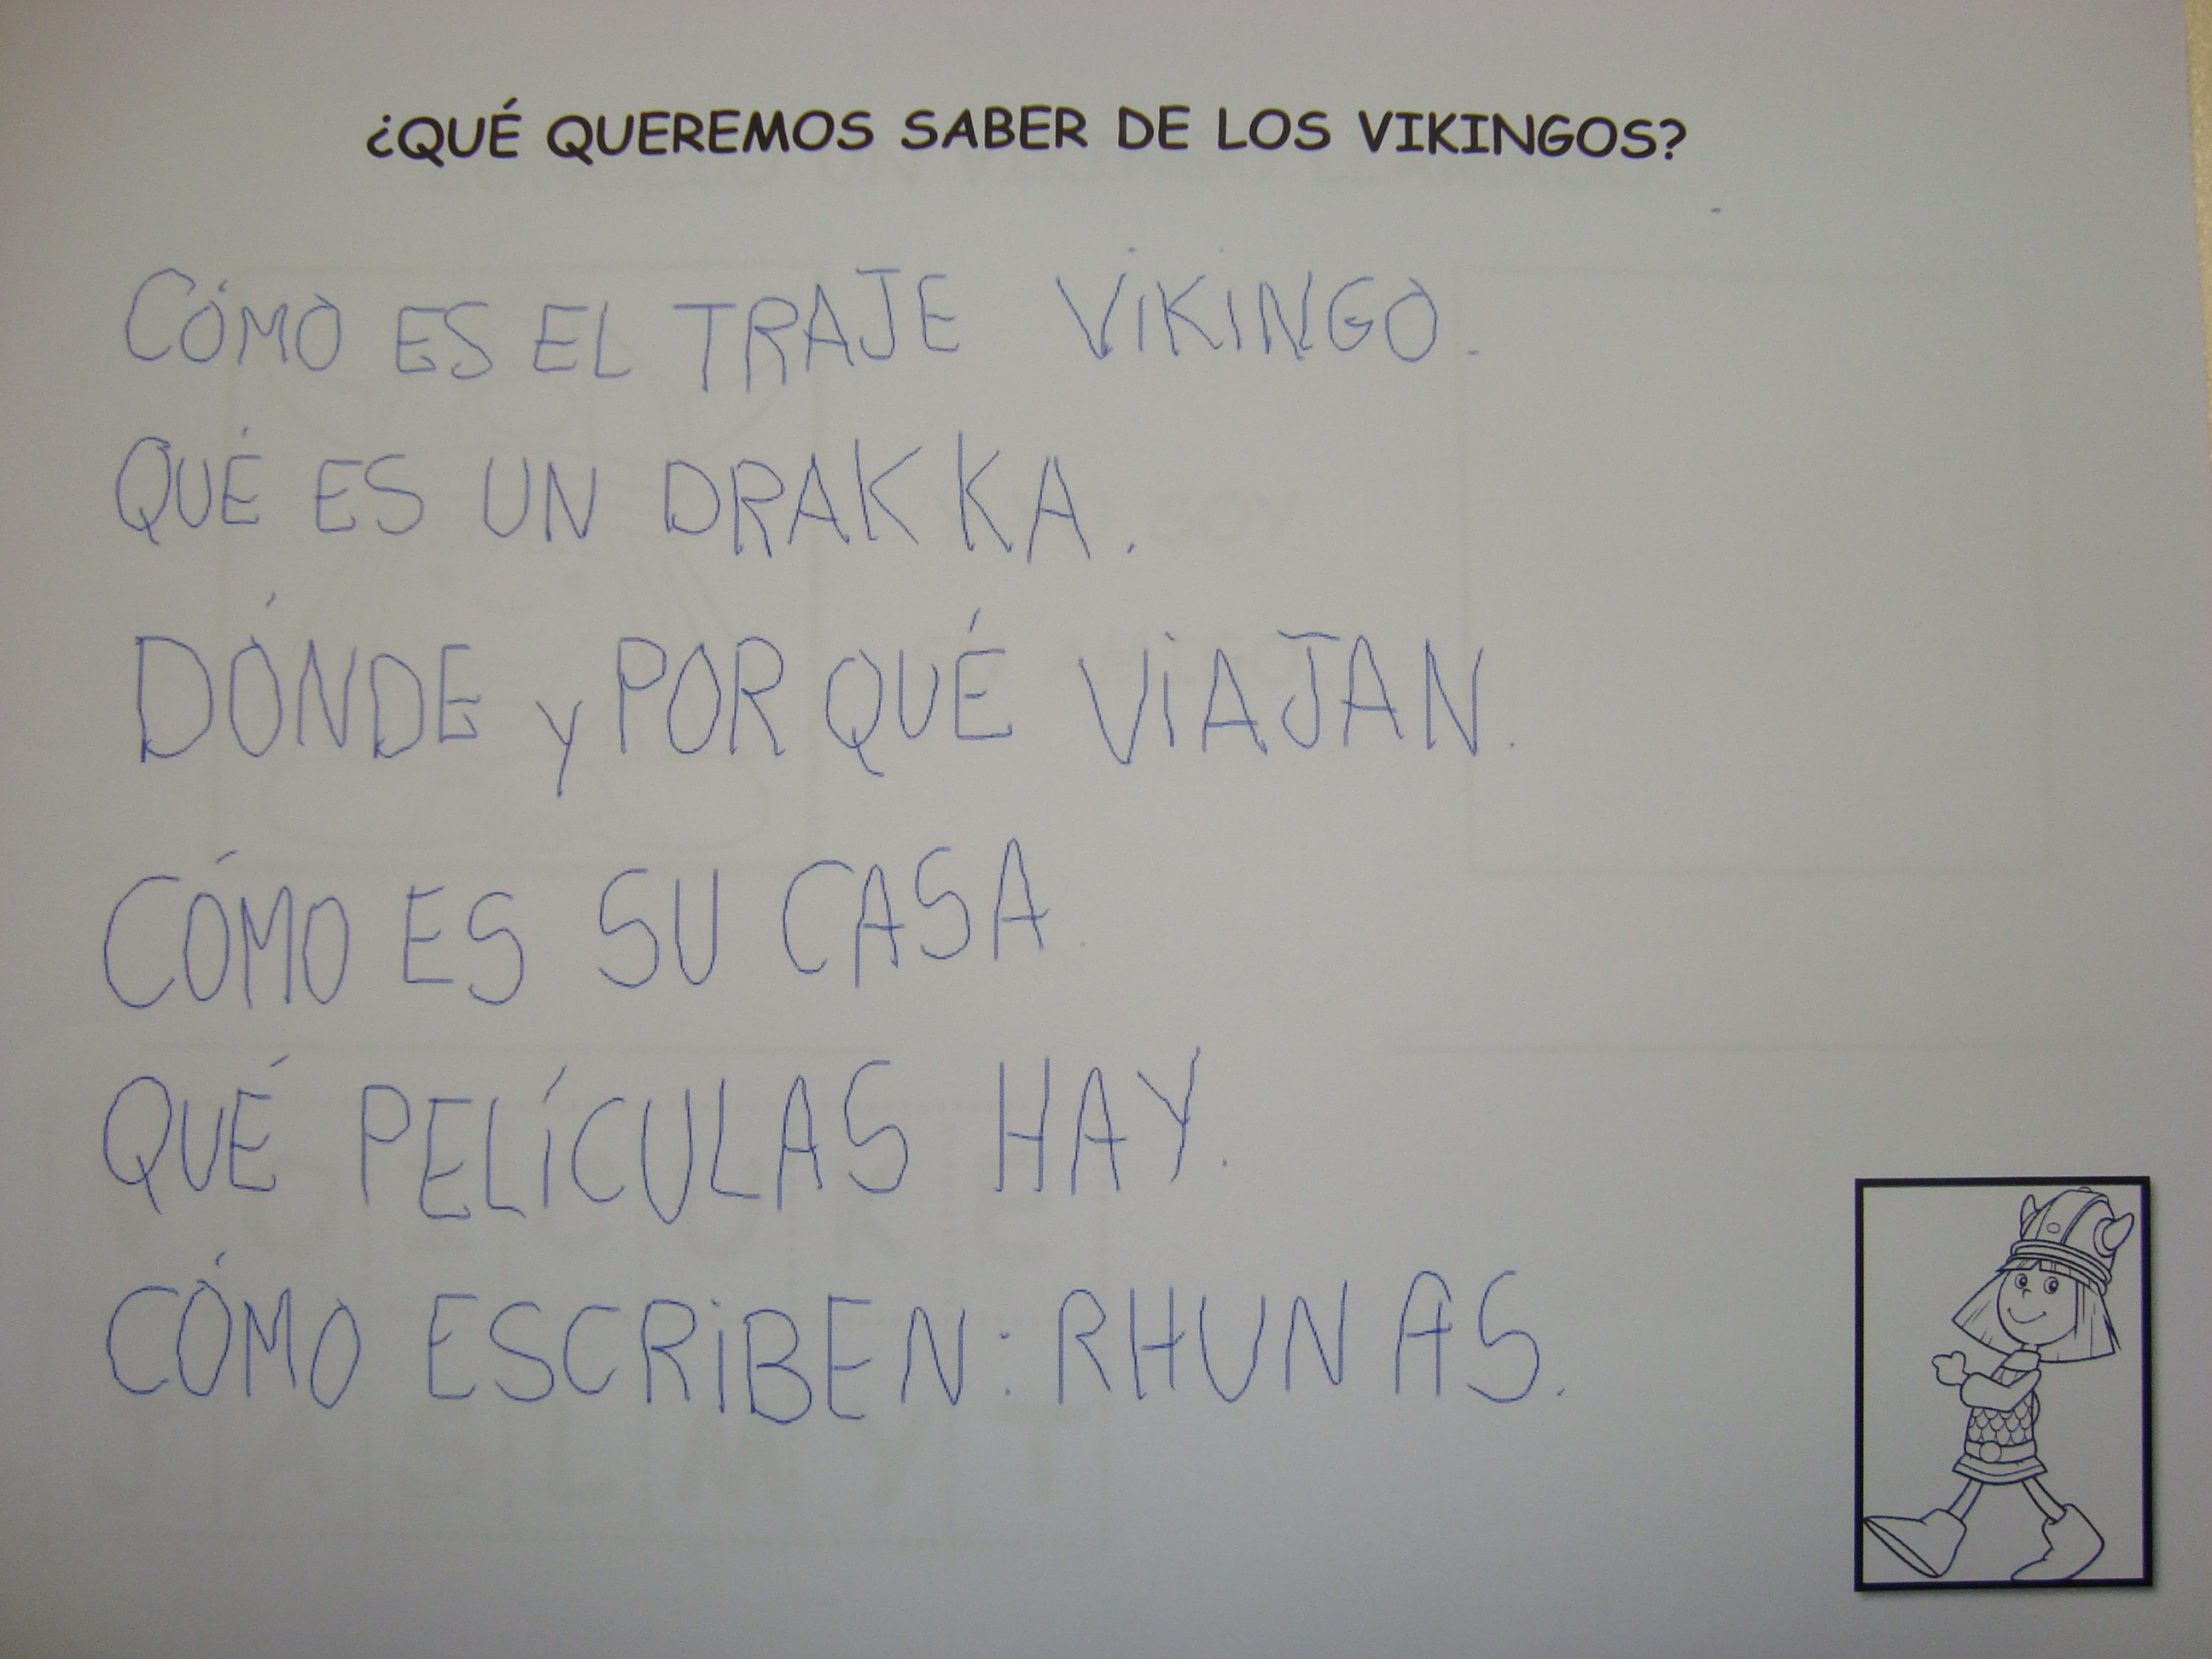 ¿QUÉ QUEREMOS SABER DE LOS VIKINGOS?
CÓMO ES EL TRAJE VIKINGO.
QUÉ ES UN DRAKKA.
DÓNDE y POR QUÉ VIAJAN.
CÓMO ES SU CASA.
QUÉ PELÍCULAS HAY.
CÓMO ESCRIBEN: RHUNAS.